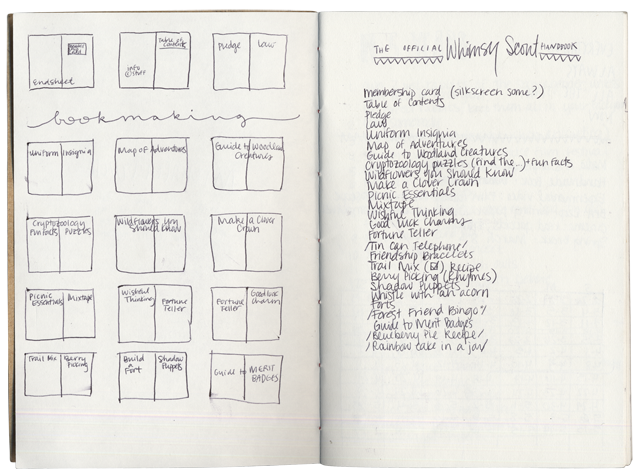 Endsheet
Table of Contents
info & stuff
Pledge Law
bookmaking
Uniform Insignia
Map of Adventures
Guide to Woodland
Creatures
Cryptozoology
Fun Facts Puzzles
Wildflowers You
Should Know
Make a Clover
Crown
Picnic
Essentials
Mixtape
Wishful
Thinking
Fortune
Teller
Fortune
Teller
Good luck
Charm
Trail Mix
Berry
Picking
Build
A Fort
Shadow
Puppets
Guide to MERIT
BADGES
THE OFFICIAL Whimsy Scout HANDBOOK
membership card (silkscreen some?)
Table of Contents
Pledge
Law
Uniform Insignia
Map of Adventures
Guide to Woodland Creatures
Cryptozoology puzzles (find the...) + fun facts
Wildflowers You Should Know
Make a Clover Crown
Picnic Essentials
Mixtape
Wishful Thinking
Good Luck Charms
Fortune Teller
/Tin Can Telephone/
Friendship Bracelets
Trail Mix (☑) Recipe
Berry Picking (Rhymes)
Shadow Puppets
Whistle with an acorn
Forts
/Forest Friend Bingo/
Guide to Merit Badges
/Blueberry Pie Recipe/
/Rainbow cake in a jar/